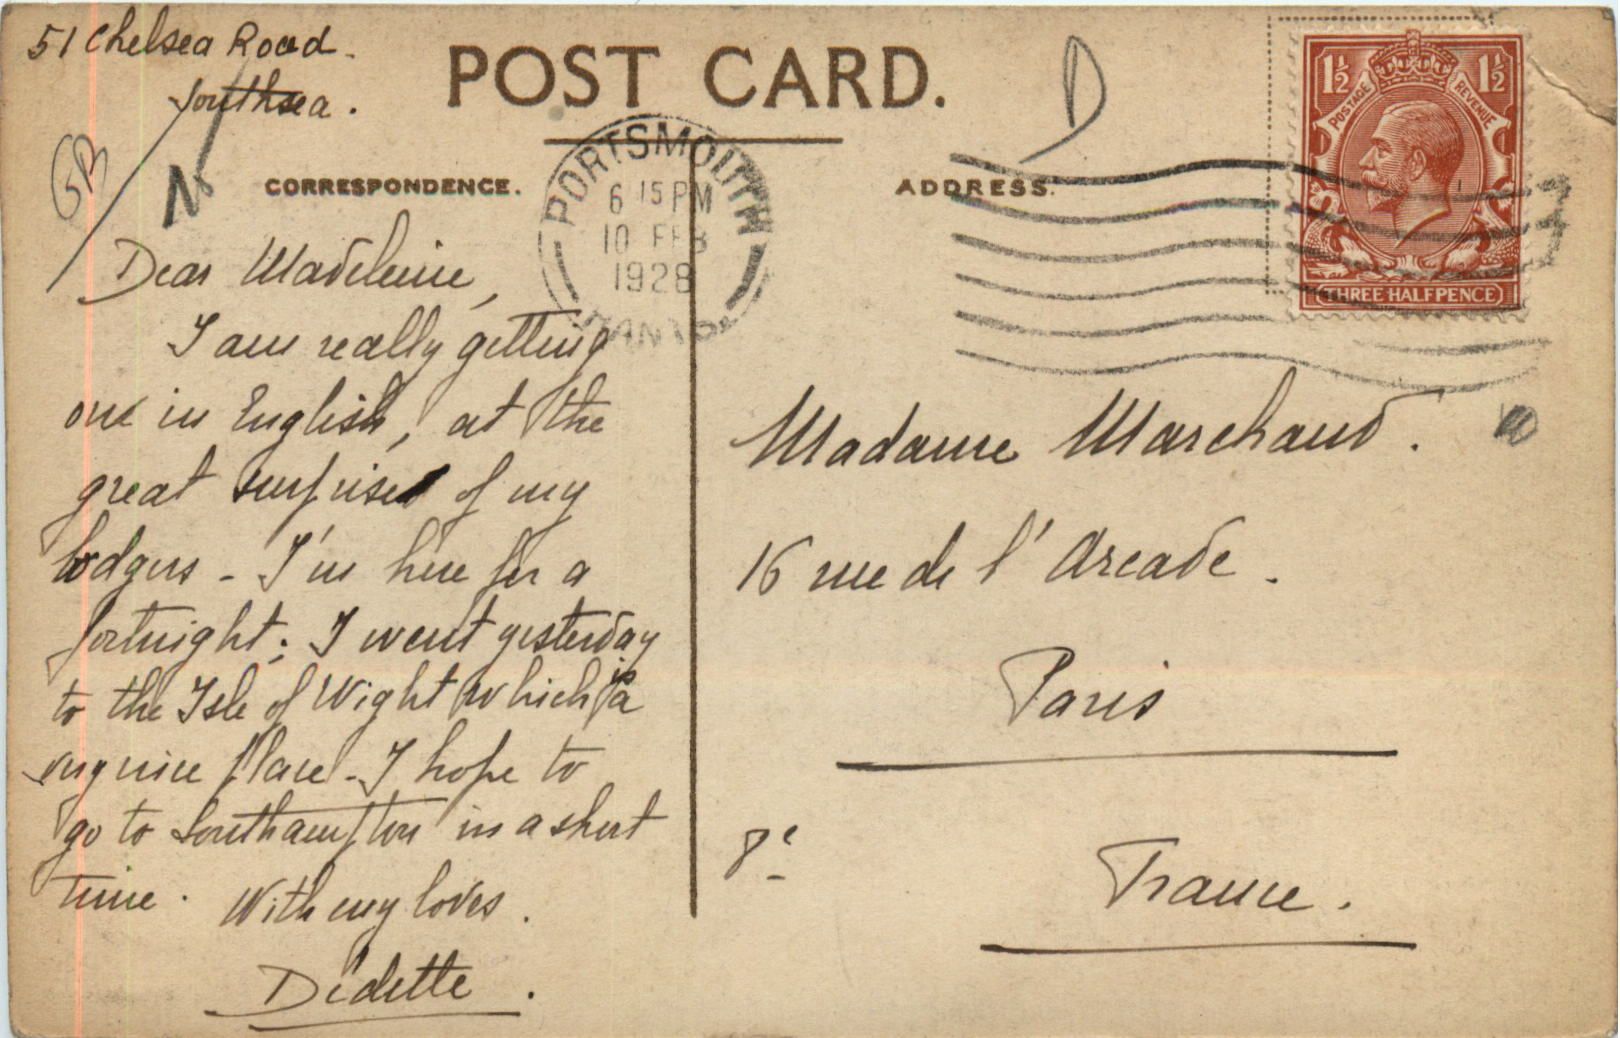 51 Chelsea Road -
Southsea .
POST CARD.
CORRESPONDENCE.
ADDRESS.
PORTSMOUTH
6 15 PM
10 FEB
1928
HANTS
1½ 1½
POSTAGE REVENUE
THREE HALFPENCE
D
GB
N
Dear Madeleine,
I am really getting
one in English, at the
great surprise of my
lodgers - I'm here for a
fortnight; I went yesterday
to the Isle of Wight which is a
very nice place - I hope to
go to Southampton in a short
time . With my loves .
Dédette .
Madame Marchand .
16 rue de l'Arcade .
Paris
8e
France .